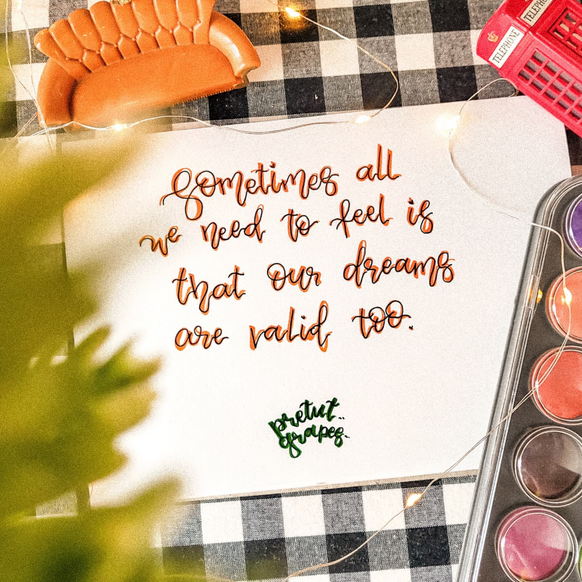 TELEPHONE
TELEPHONE
Sometimes all
we need to feel is
that our dreams
are valid too.
pretut..
grapes..